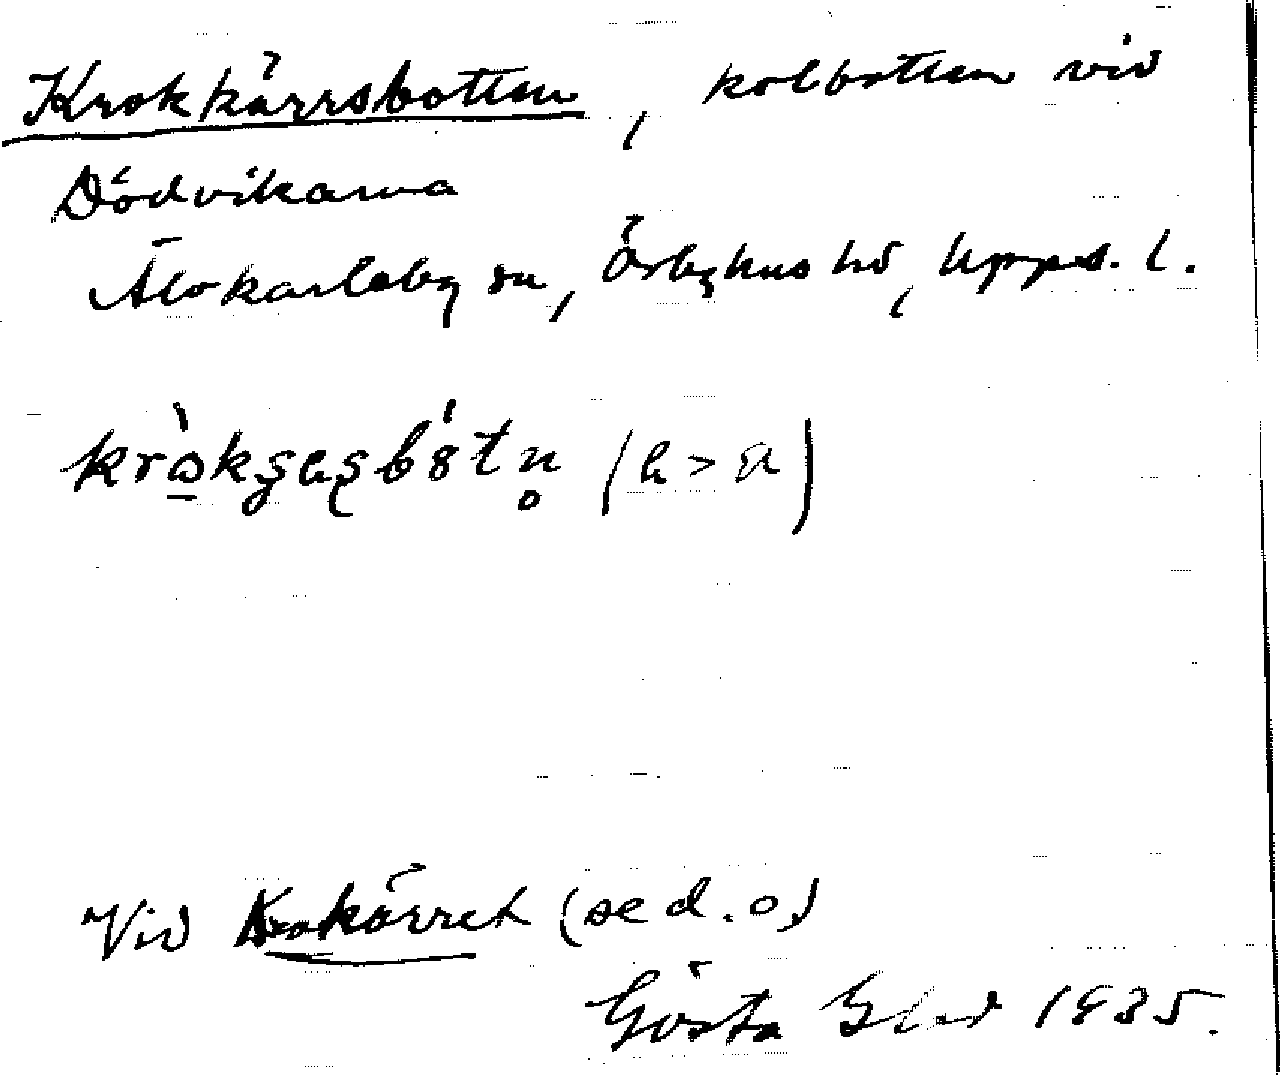 Krokkärrsbotten, kolbotten vid
Dödvikarna
Älvkarleby sn, Örbyhus hd, Upps. l.
Vid Krokärret (se d. o.)
Gösta Blad 1935.